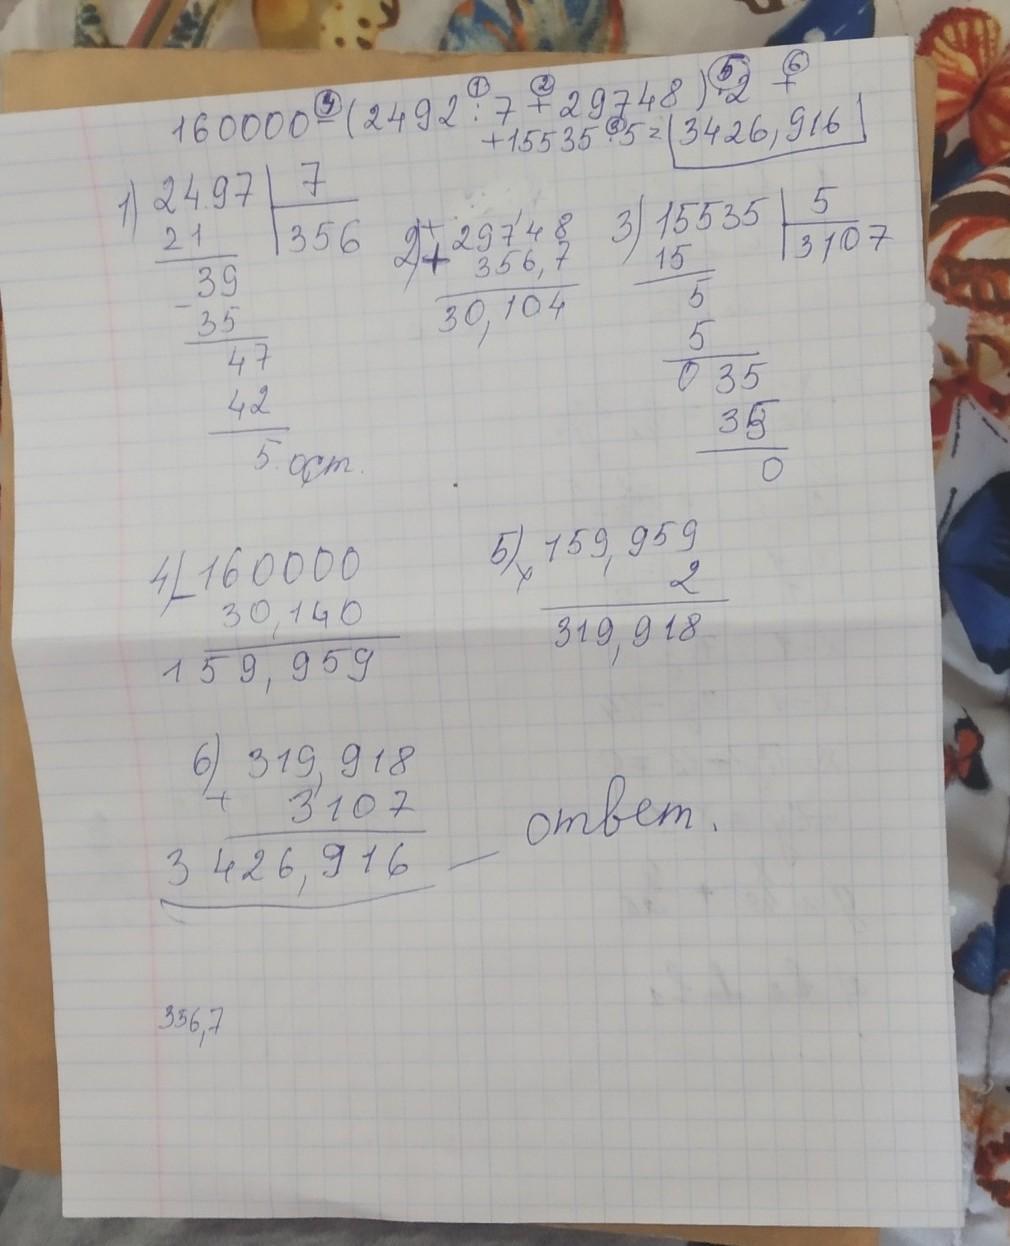 160000 - (2492 : 7 + 29748) · 2 +
+ 15535 : 5 = 3426,916
1) 2497 7
21 356
39
- 35
47
42
5 ост.
2) + 29748
+ 356,7
30,104
3) 15535 5
15 3107
5
5
0 35
35
0
4) - 160000
30,140
159,959
5) x 159,959
2
319,918
6) 319,918
+ 3107
3426,916 — ответ.
356,7